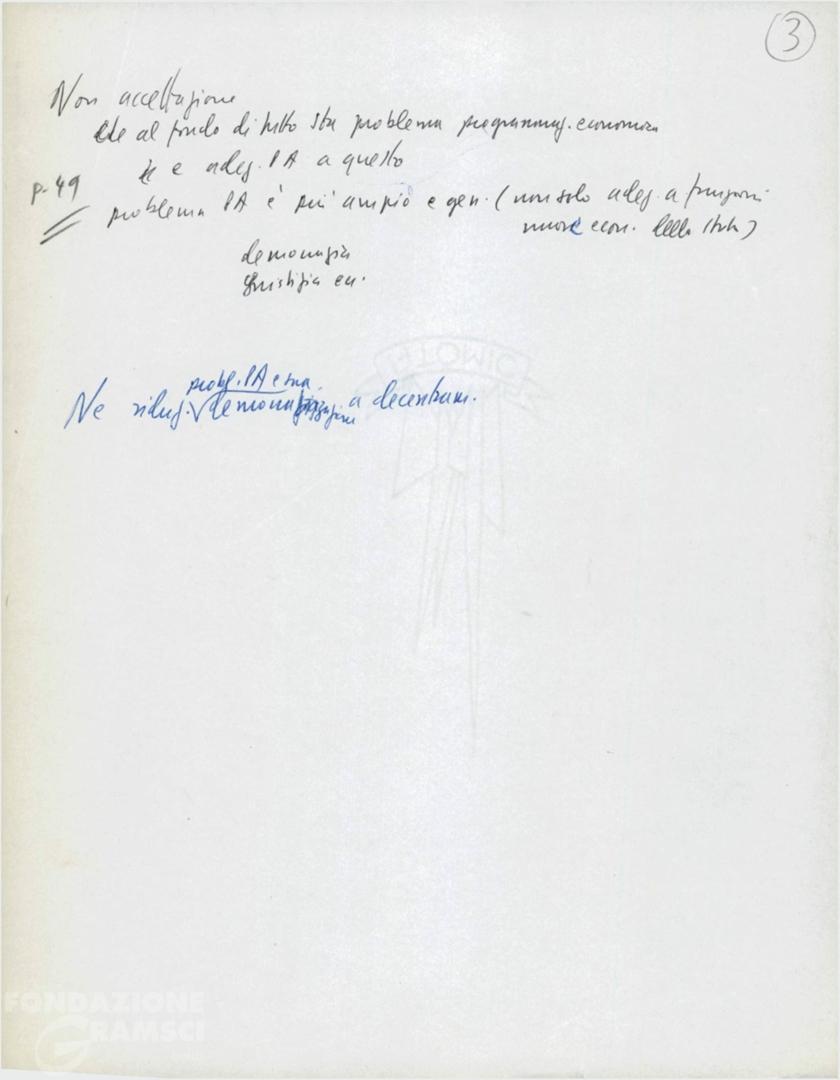 3
Non accettazione
che al fondo di tutto sta problema programmaz. economica
e adeg. PA a questo
p. 49
problema PA è più ampio e gen. (non solo adeg. a funzioni
nuove econ. dello Stato)
democrazia
giustizia
probl. PA e sua
Ne riduz. democratizzazione a decentram.
FONDAZIONE
GRAMSCI